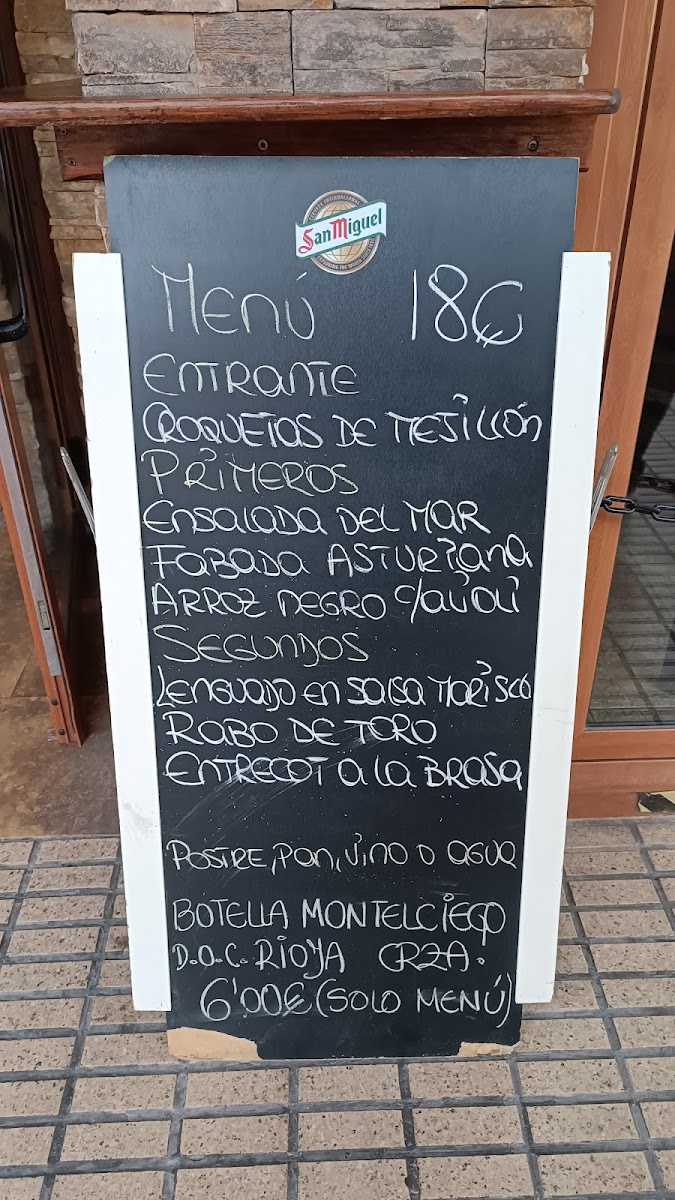 San Miguel
MENÚ 18€
ENTRANTE
CROQUETAS DE MEJILLÓN
PRIMEROS
ENSALADA DEL MAR
FABADA ASTURIANA
ARROZ NEGRO C/ALIOLI
SEGUNDOS
LENGUADO EN SALSA MARISCO
RABO DE TORO
ENTRECOT A LA BRASA
POSTRE, PAN, VINO O AGUA
BOTELLA MONTELCIEGO
D.O.C. RIOJA CRZA.
6'00€ (SOLO MENÚ)